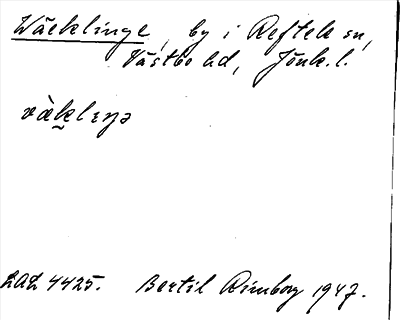 Wäcklinge, by i Reftele sn,
Västbo hd, Jönk. l.
vàk̬lıŋə
LAL 4425. Bertil Rimborg 1947.